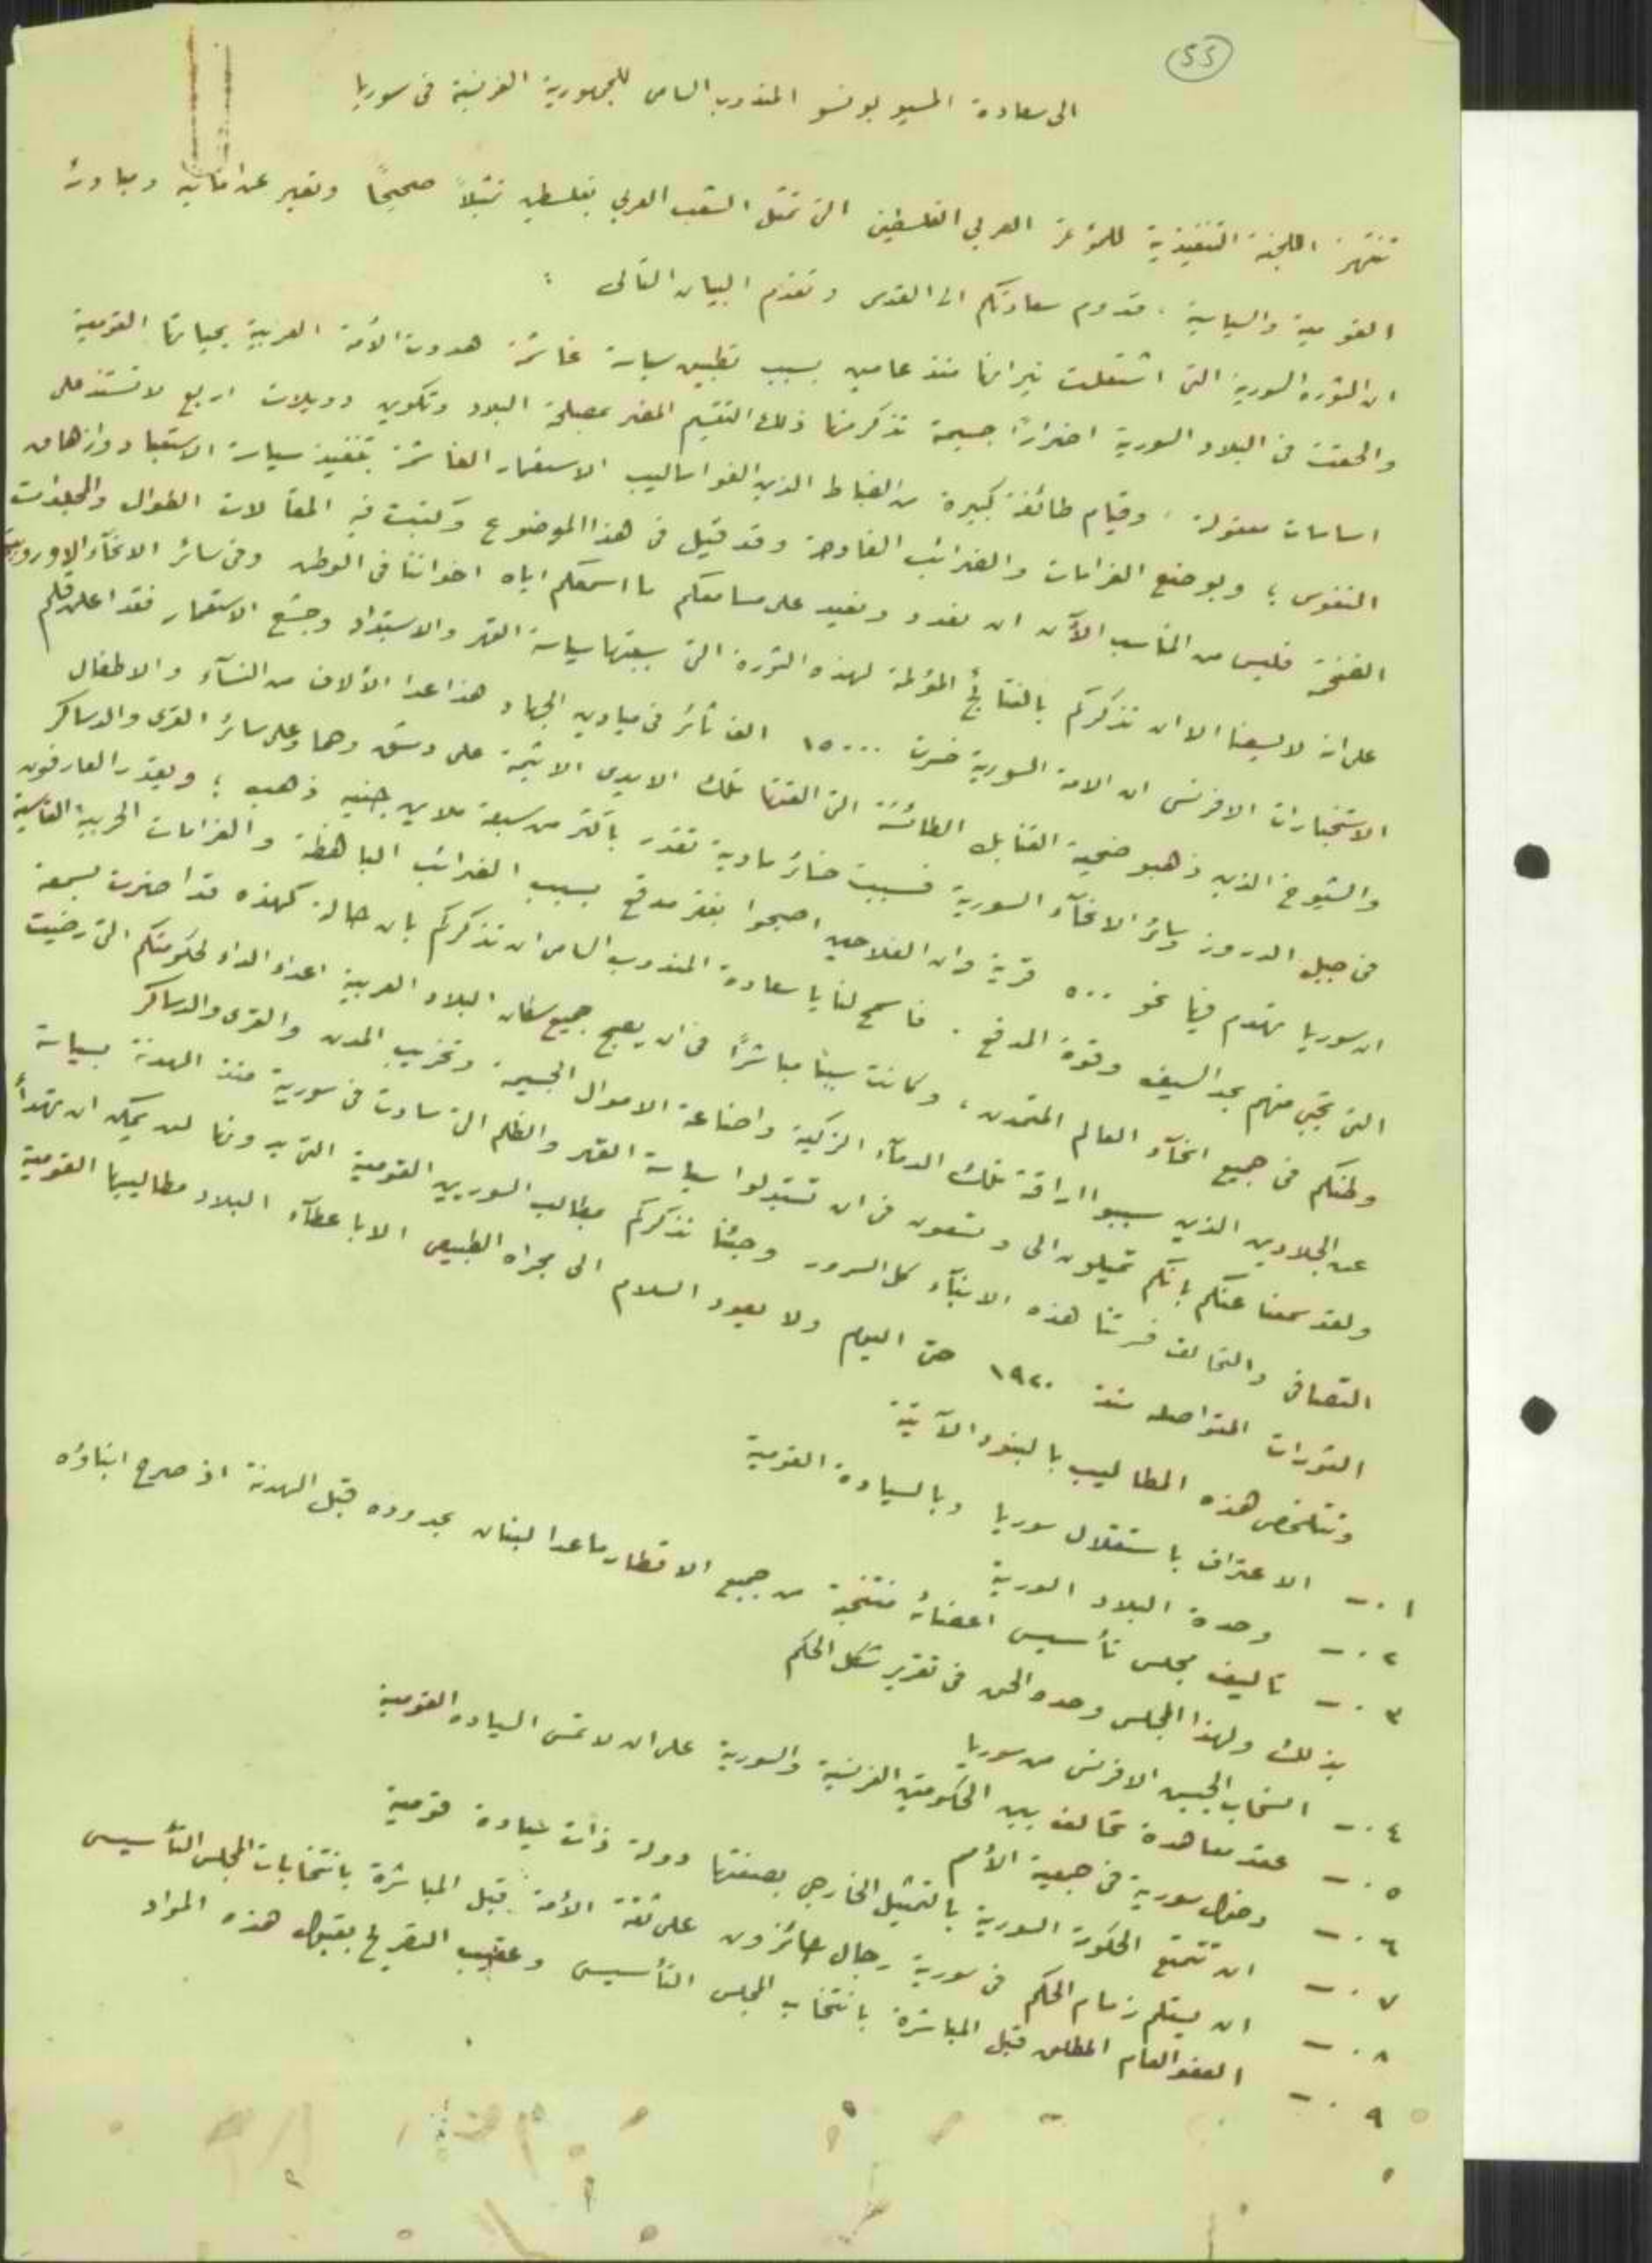 55
الى سعادة المسيو بونسو المندوب السامى للجمهورية الفرنسية فى سوريا
تنتهز اللجنة التنفيذية للمؤتمر العربي الفلسطينى التى تمثل الشعب العربي بفلسطين تمثيلاً صحيحًا وتعبر عن امانيه ومبادئه
القومية والسياسية . قدوم سعادتكم الى القدس وتقدم البيان التالى :
ان الثورة السورية التى اشتعلت نيرانها منذ عامين بسبب تطبيق سياسة غاشمة هددت الأمة العربية بحياتها القومية
والحقت فى البلاد السورية اضرارًا جسيمة نذكر منها ذلك التقسيم المضر بمصلحة البلاد وتكوين دويلات اربع لا تستند على
اساسات معقولة . وقيام طائفة كبيرة من الضباط الذين الفوا اساليب الاستعمار الغاشمة بتنفيذ سياسة الاستعباد وازهاق
النفوس ؛ وبوضع الغرامات والضرائب الفادحة وقد قيل فى هذا الموضوع وكتبت فيه المقالات الطوال والمجلدات
الضخمة فليس من المناسب الآن ان نعدد ونعيد على مسامعكم ما اسمعكم اياه اخواننا فى الوطن وفى سائر الانحآء الاوروبية
على انه لا يسعنا الا ان نذكركم بالنتائج المؤلمة لهذه الثورة التى سببتها سياسة القهر والاستبداد وجشع الاستعمار فقد اعلن قلم
الاستخبارات الافرنسى ان الامة السورية خسرت ١٥٠٠٠ الف ثائر فى ميادين الجهاد هذا عدا الألاف من النسآء والاطفال
والشيوخ الذين ذهبو ضحية القنابل الطائشة التى القتها تلك الايدى الاثيمة على دمشق وحما وعلى سائر القرى والدساكر
فى جبل الدروز وسائر الانحآء السورية فسببت خسائر مادية تقدر باكثر من سبعة ملايين جنيه ذهب ؛ ويقدر العارفون
ان سوريا تهدم فيها نحو ٥٠٠ قرية وان الفلاحين اصبحوا بفقر مدقع بسبب الضرائب الباهظة والغرامات الحربية القاسية
التى تجبى منهم بحد السيف وقوة المدفع . فاسمح لنا يا سعادة المندوب السامى ان نذكركم بان حالة كهذه قد اضرت بسمعة
وطنكم فى جميع انحآء العالم المتمدن ، وكانت سببًا مباشرًا فى ان يصبح جميع سكان البلاد العربية اعداء الداء لحكومتكم التى رضيت
عن الجلادين الذين سببوا اراقة تلك الدمآء الزكية واضاعة الاموال الجسيمة وتخريب المدن والقرى والدساكر
ولقد سمعنا عنكم بانكم تميلون الى وتسعون فى ان تستبدلوا سياسة القهر والظلم التى سادت فى سورية منذ الهدنة بسياسة
التصافى والتحالف فسرتنا هذه الانبآء كل السرور وجئنا نذكركم بمطالب السوريين القومية التى بدونها لن يمكن ان تهدأ
الثورات المتواصله منذ ١٩٢٠ حتى اليوم ولا يعود السلام الى مجراه الطبيعى الا باعطآء البلاد مطاليبها القومية
وتتلخص هذه المطاليب بالبنود الآتية
١.— الاعتراف باستقلال سوريا وبالسيادة القومية
٢.— وحدة البلاد السورية
٣.— تاليف مجلس تأسيسى اعضائه منتخبة من جميع الاقطار ماعدا لبنان بحدوده قبل الهدنة اذ صرح ابناؤه
بذلك ولهذا المجلس وحده الحق فى تقرير شكل الحكم
٤.— انسحاب الجيش الافرنسى من سوريا
٥.— عقد معاهدة تحالف بين الحكومتين الفرنسية والسورية على ان لا تمس السياده القومية
٦.— دخول سورية فى جمعية الأمم
٧.— ان تتمتع الحكومة السورية بالتمثيل الخارجى بصفتها دولة ذات سيادة قومية
٨.— ان يستلم زمام الحكم فى سورية رجال حائزون على ثقة الأمة قبل المباشرة بانتخابات المجلس التأسيسى
٩.— العفو العام المطلق قبل المباشرة بانتخاب المجلس التأسيسى وعقيب التصريح بقبول هذه المواد